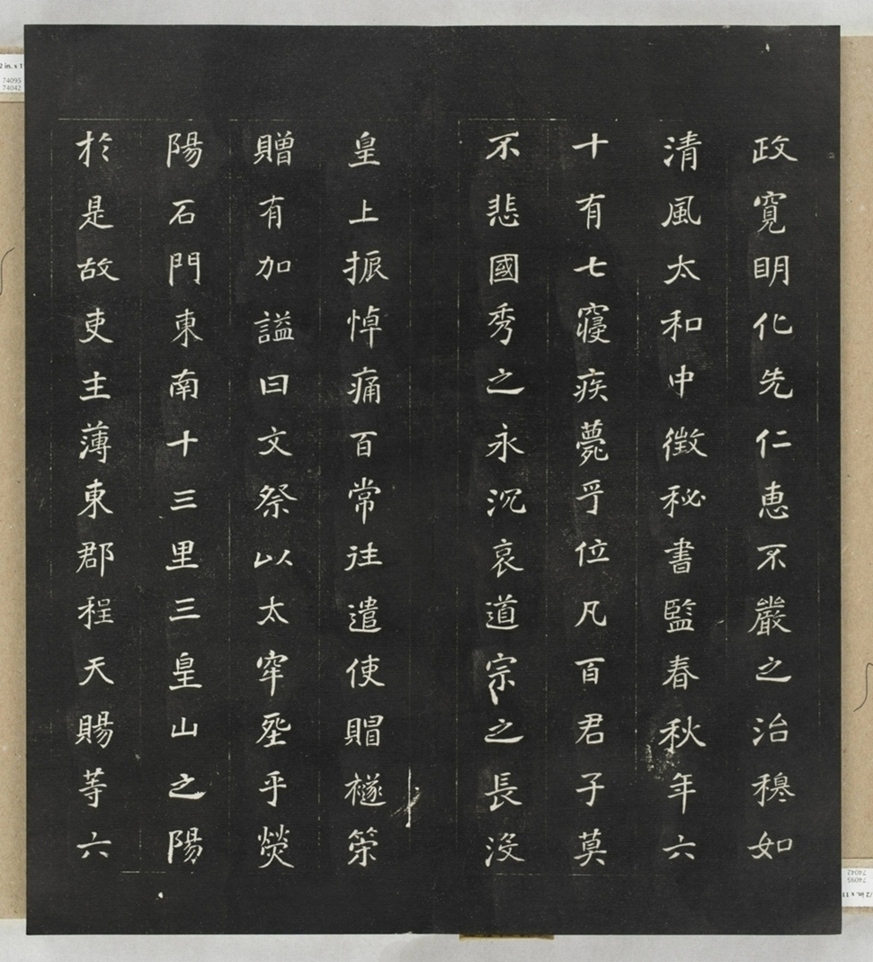 政寬明化先仁惠不嚴之治穆如
清風太和中徵秘書監春秋年六
十有七寢疾薨乎位凡百君子莫
不悲國秀之永沉哀道宗之長沒
皇上振悼痛百常往遣使賵襚策
贈有加謚曰文祭以太牢葬乎熒
陽石門東南十三里三皇山之陽
於是故吏主薄東郡程天賜等六